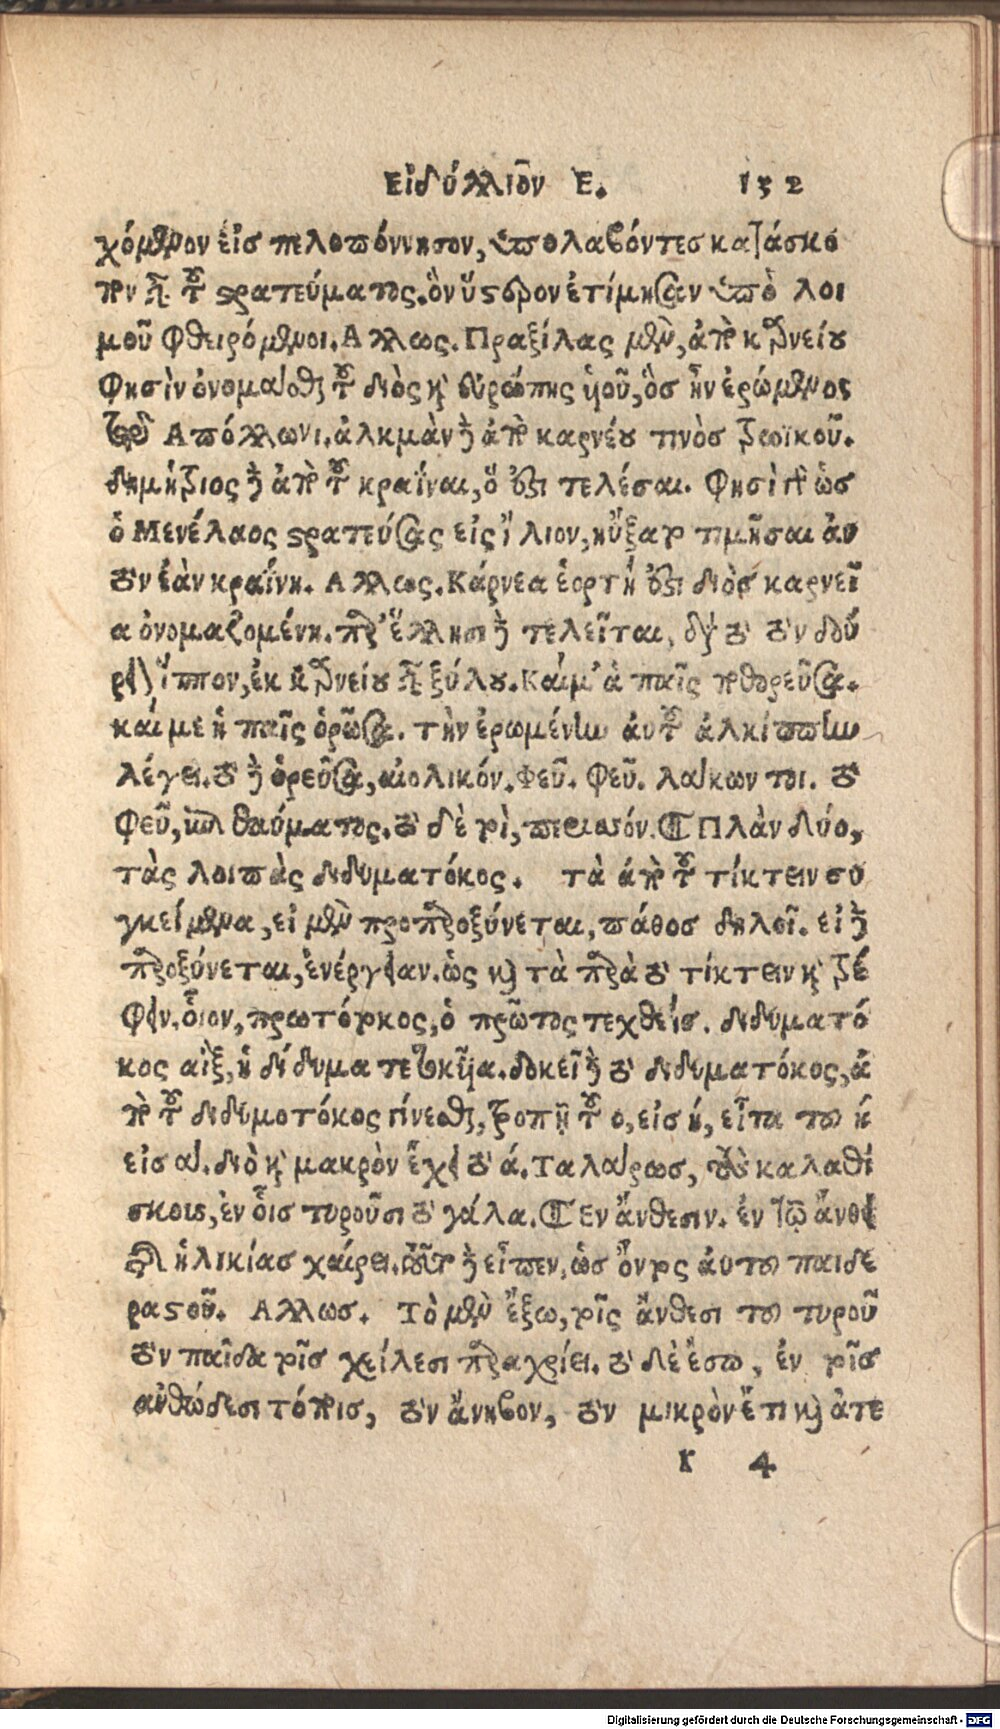 Εἰδύλλιον Ε. 152
χόμενον εἰς πελοπόννησον, ὑπολαβόντες κατάσκο
πον εἶναι τοῦ στρατεύματος. ὃν ὕστερον ἐτίμησαν ὑπὸ λοι
μοῦ φθειρόμενοι. Αλλως. Πραξίλας μὲν, ἀπὸ καρνείου
φησὶν ὀνομάσθαι τοῦ διὸς καὶ εὐρώπης υἱοῦ, ὃς ἦν ἐρώμενος
τῷ Απόλλωνι. ἀλκμὰν δὲ ἀπὸ καρνέου τινὸς τρωϊκοῦ.
δημήτριος δὲ ἀπὸ τοῦ κραῖναι, ὅ ἐστι τελέσαι. φησὶ γὰρ ὡς
ὁ Μενέλαος στρατεύσας εἰς ἴλιον, ηὔξατο τιμῆσαι αὐ
τὸν ἐὰν κραίνη. Αλλως. Κάρνεα ἑορτή ἐστι διὸς καρνεῖ
α ὀνομαζομένη. παρ' ἕλλησι δὲ τελεῖται, διὰ τὸ τὸν δού
ρειον ἵππον, ἐκ
καί με ἡ παῖς ὁρῶσα. τὴν ἐρωμένην αὐτοῦ ἀλκίππην
λέγει. τὸ δὲ ὁρεῦσα, αἰολικόν. Φεῦ. Φεῦ. λάκων τοι. τὸ
φεῦ, ἐπὶ θαύματος. τὸ δέ τοι, περισσόν. Πλὰν δύο,
τὰς λοιπὰς διδυματόκος. τὰ ἀπὸ τοῦ τίκτειν συ
γκείμενα, εἰ μὲν προπαροξύνεται, πάθος δηλοῖ. εἰ δὲ
παροξύνεται, ἐνέργειαν. ὡς καὶ τὰ παρὰ τὸ τίκτειν καὶ τρέ
φειν. οἷον, πρωτότοκος, ὁ πρῶτος τεχθείς. διδυματό
κος αἲξ, ἡ δίδυμα τετοκῖηα. δοκεῖ δὲ τὸ διδυματόκος, ἀ
πὸ τοῦ διδυμοτόκος γίνεσθαι, τροπῇ τοῦ ο, εἰς ή, εἶτα τοῦ ή
εἰς α. διὸ καὶ μακρὸν ἔχει τὸ ά. Ταλάρως, τοῖς καλαθί
σκοις, ἐν οἷς τυροῦσι τὸ γάλα. Εν ἄνθεσιν. ἐν τῷ ἄνθει
τῆς ἡλικίας χαίρει. τοῦτο δὲ εἶπεν, ὡς ὄντος αὐτοῦ παιδε
ραστοῦ. Αλλως. Τὸ μὲν ἔξω, τοῖς ἄνθεσι τοῦ τυροῦ
τὸν παῖδα τοῖς χείλεσι παραχρίει. τὸ δὲ ἔσω, ἐν τοῖς
ἀνθώδεσι τόποις, τὸν ἄνηβον, τὸν μικρὸν ἔτι καὶ ἀτε
K 4
Digitalisierung gefördert durch die Deutsche Forschungsgemeinschaft - DFG